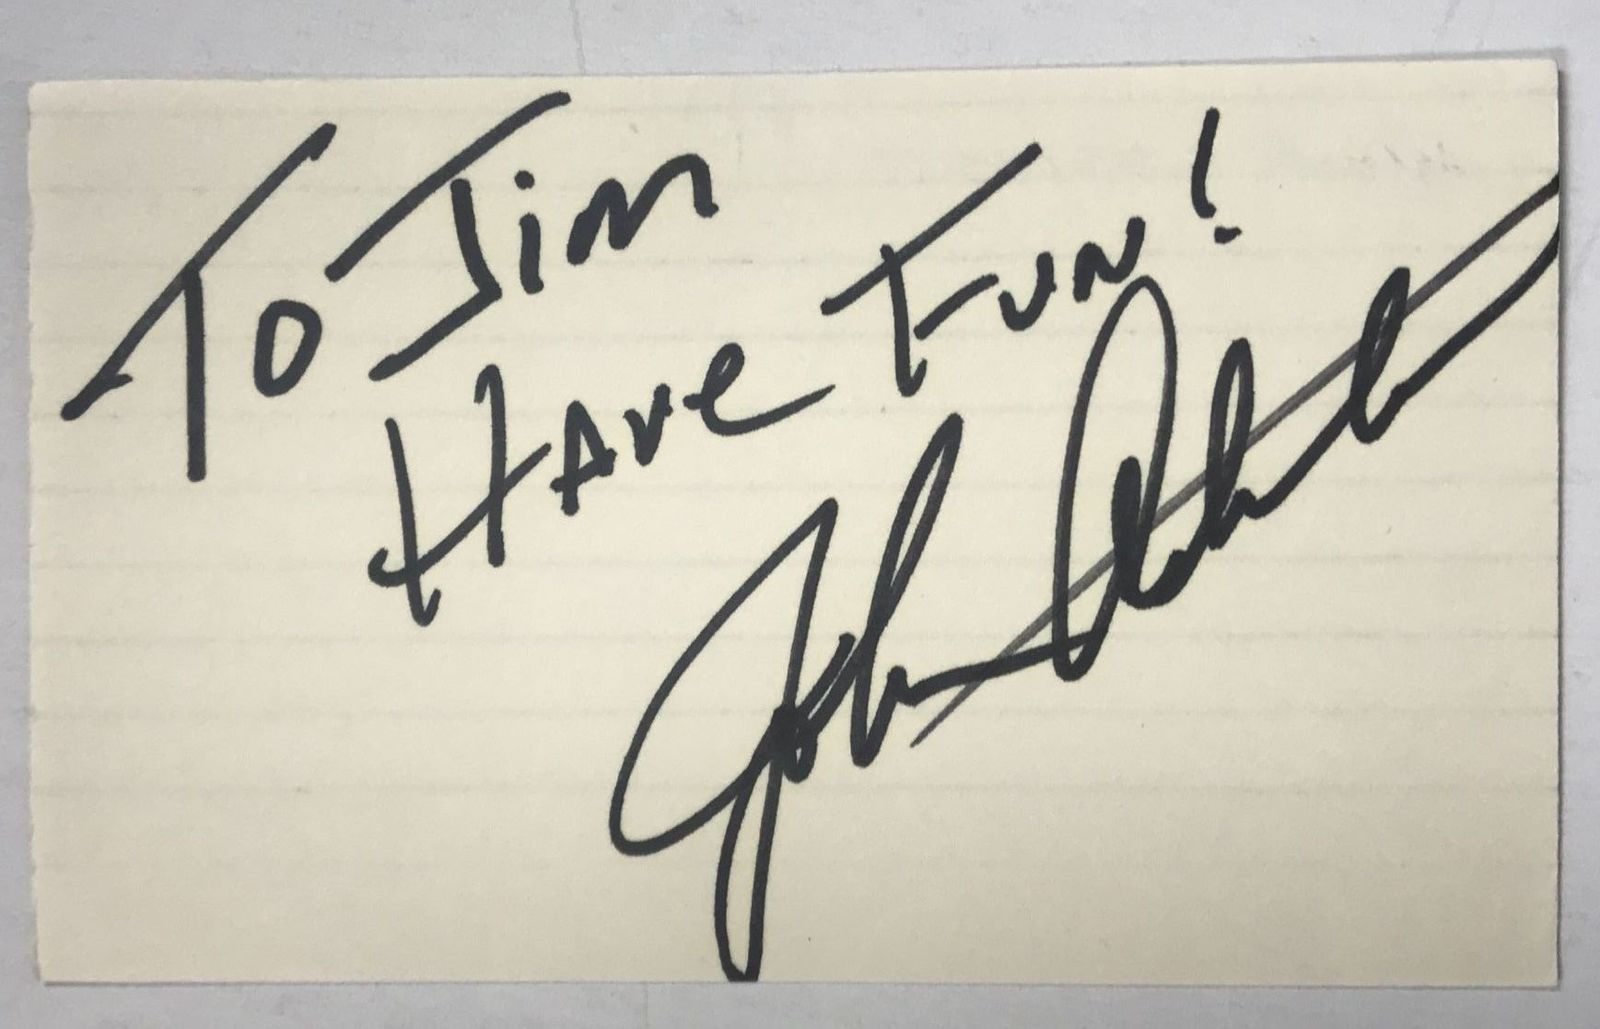 To Jim
Have Fun!
John